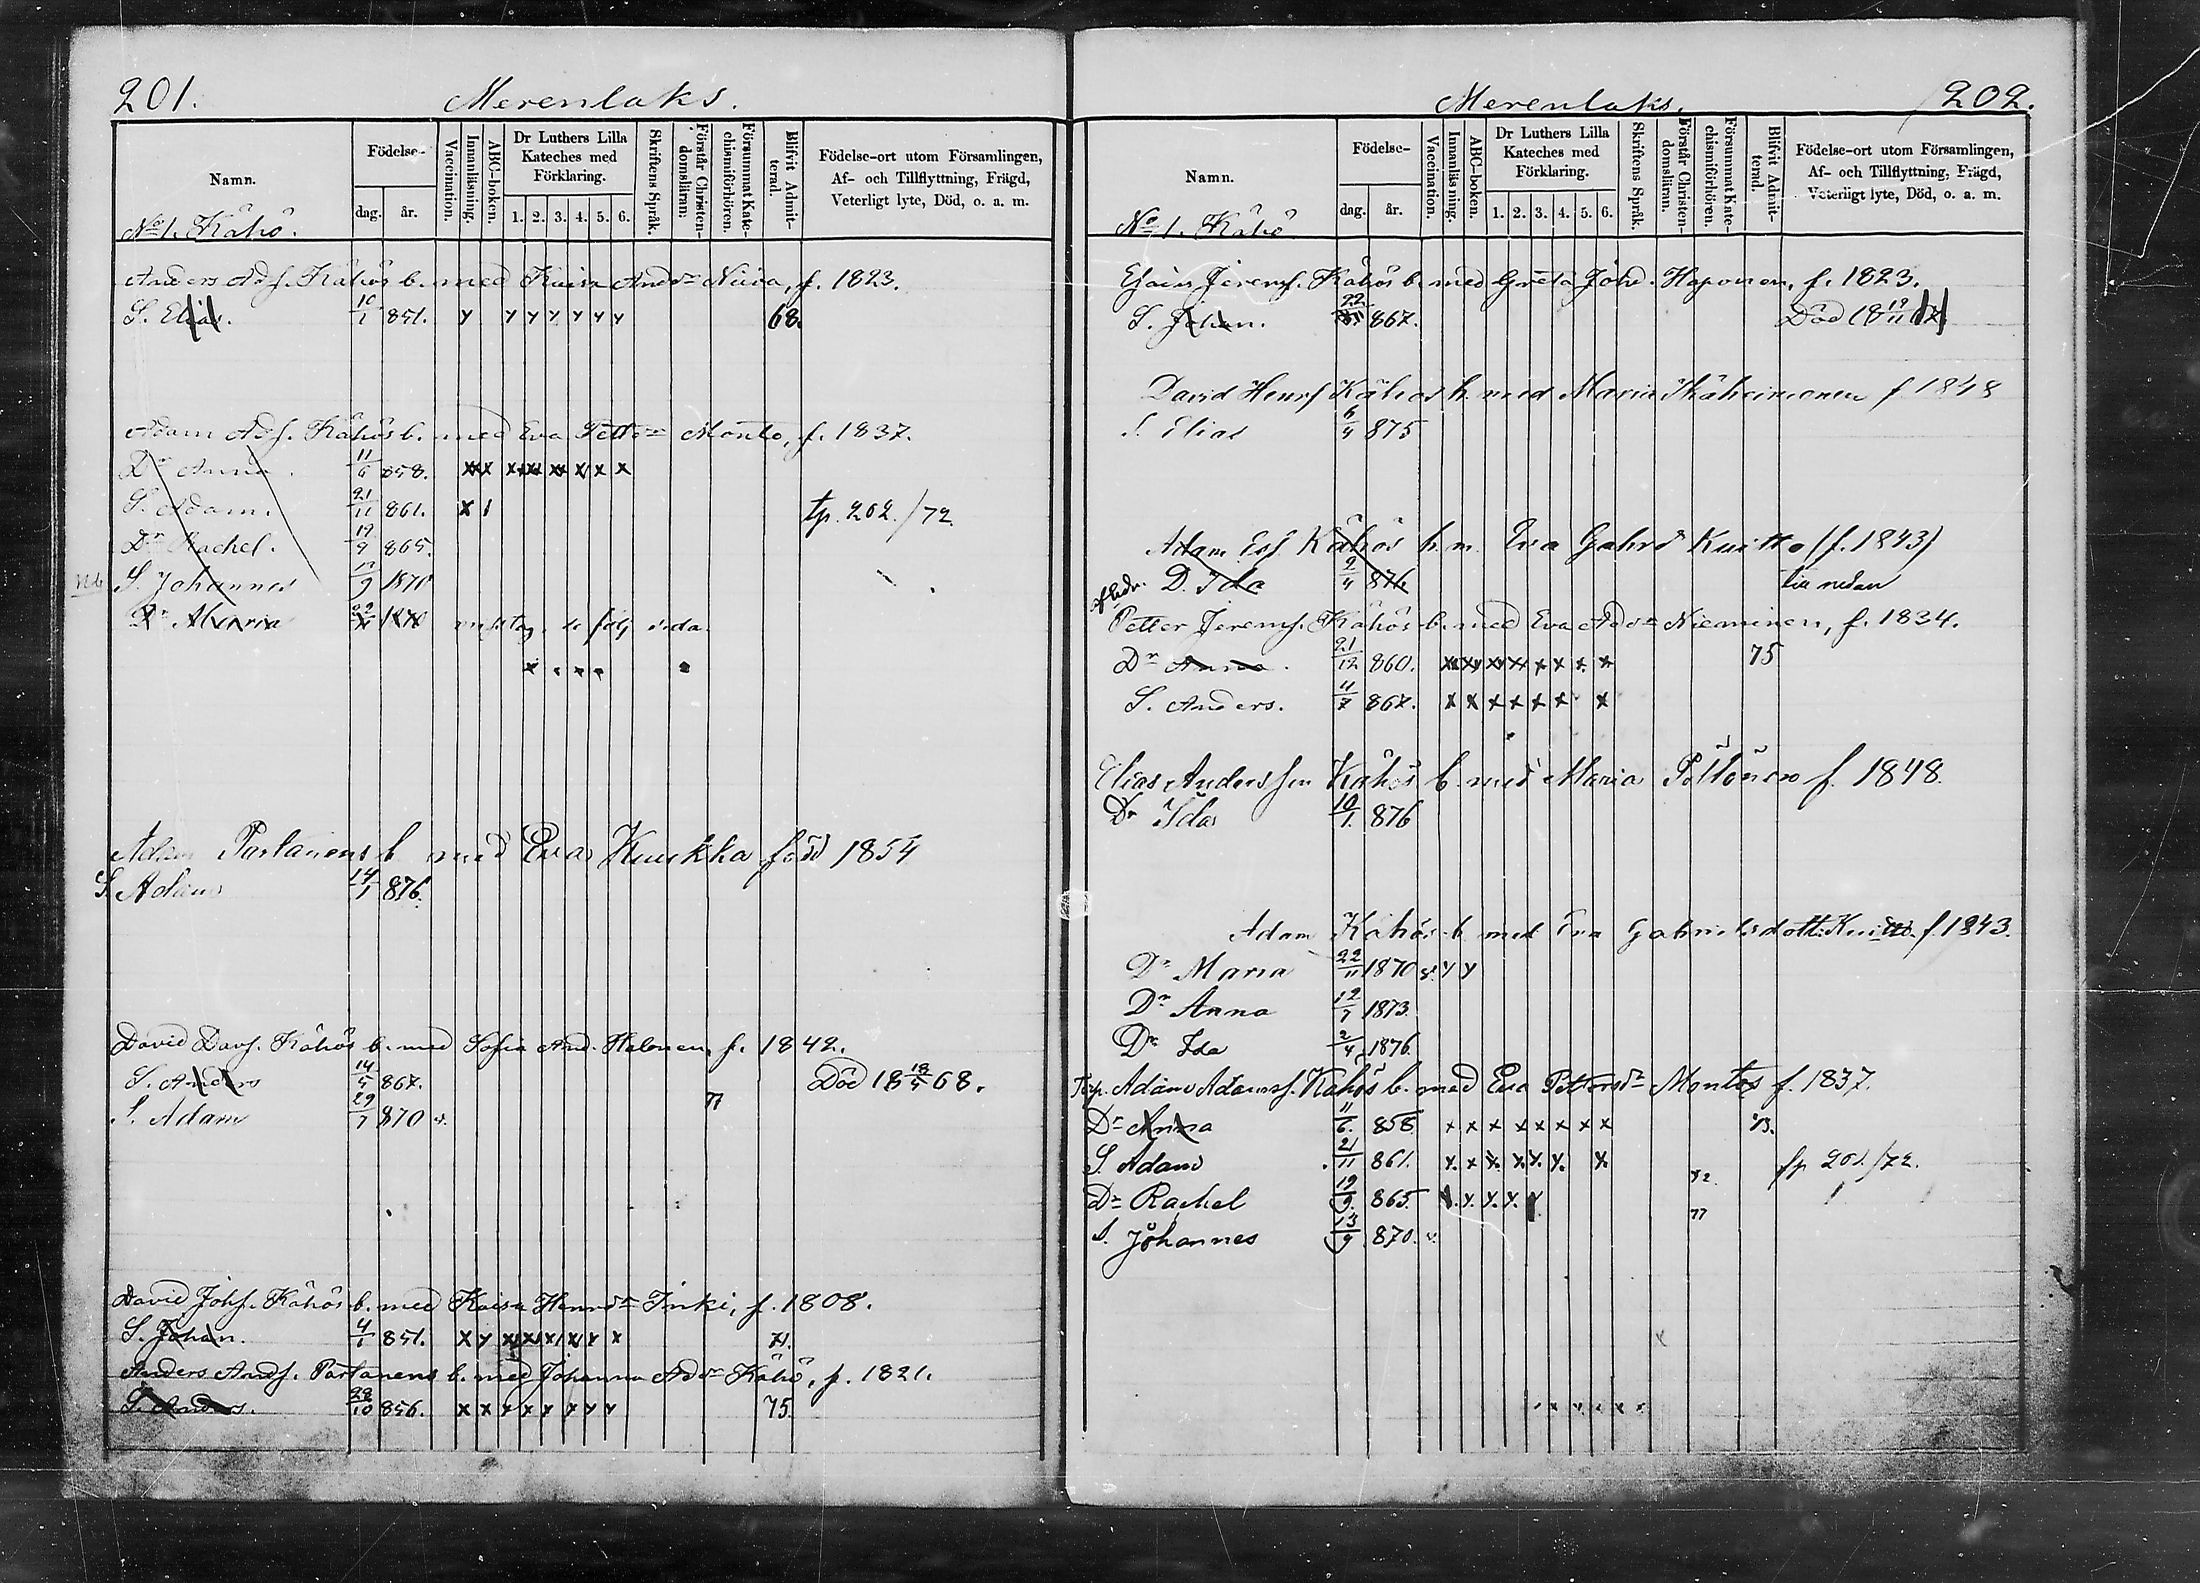 201.
Merenlaks.
Namn.
Födelse-
dag. år.
Vaccination.
Innanläsning.
ABC-boken.
Dr Luthers Lilla Kateches med Förklaring.
1. 2. 3. 4. 5. 6.
Skriftens Språk.
Förstår Christendomsläran:
Försummat Katechismiförhören.
Blifvit Admitterad.
Födelse-ort utom Församlingen, Af- och Tillflyttning, Frägd, Veterligt lyte, Död, o. a. m.
No 1. Kähö.
Anders Ads. Kähös b. med Kaisa Andr Niiva, f. 1823.
S. Elias. 10/1 851. 68.
Adam Ads. Kähös b. med Eva Pettr Monto, f. 1837.
Dr Anna. 11/6 858.
S. Adam. 21/11 861. tp. 202./72.
Dr Rachel. 19/9 865.
S. Johannes 13/9 1870
Dr Maria 22/11 1870 följ sida
Adam Partanens b med Eva Kukka född 1854
S. Adam 14/1 876.
David Davs. Kähös b. med Sofia And. Halonen, f. 1842.
S. Anders 14/5 867. Död 18 18/5 68.
S. Adam 29/7 870 v. 77
David Johs. Kähös b. med Kaisa Henrdr Inki, f. 1808.
S. Johan. 4/1 851. 71.
Anders Ands. Partanens b. med Johanna Addr Kähö, f. 1821.
S. Anders. 22/10 856. 75.
202.
Merenlaks.
Namn.
Födelse-
dag. år.
Vaccination.
Innanläsning.
ABC-boken.
Dr Luthers Lilla Kateches med Förklaring.
1. 2. 3. 4. 5. 6.
Skriftens Språk.
Förstår Christendomsläran.
Försummat Katechismiförhören.
Blifvit Admitterad.
Födelse-ort utom Församlingen, Af- och Tillflyttning, Frägd, Veterligt lyte, Död, o. a. m.
No 1. Kähö
Esaias Jerems. Kähös b. med Greta Johd. Haponen, f. 1823.
S. Johan. 867. Död 18
David Henrs Kähös b. med Maria f 1848
S. Elias 6/4 875
Adam Kähös h m Eva Gabrd Kuitto (f. 1843)
D. Ida 2/4 876 nedan
Petter Jerems. Kähös b. med Eva Addr Nieminen, f. 1834.
Dr Anna. 21/12 860. 75
S. Anders. 11/7 867.
Elias Andersson Kähös b. med Maria Pöllönen f. 1848.
Dr Ida 10/1. 876
Adam Kähös b med Eva Gabrielsdott. Kuitto f. 1843.
Dr Maria 22/11 1870
Dr Anna 12/7 1873.
Dr Ida 2/4 1876.
Adam Adams. Kähös b. med Eva Pettersdr Montos f. 1837.
Dr Anna 11/6. 858. 73.
S. Adam 21/11 861. fp 201./72.
Dr Rachel 19/9. 865. 72.
S. Johannes 13/9 870. v. 77